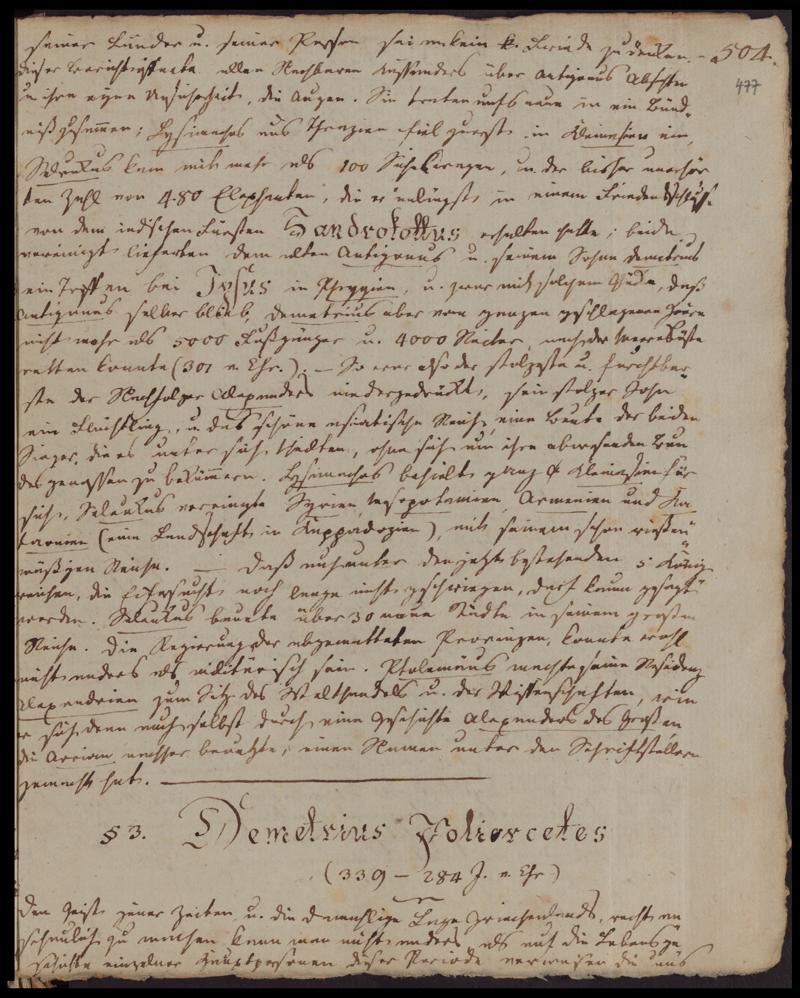 seiner Länder u. seiner Person sei an kein Friede zu denken. – 504.
477
dieser Bericht öffnete allen Nachbaren besonders über Antigonus Absichten
u. ihre eigne Unsicherheit, die Augen. Sie traten aufs neue in ein Bünd-
niß zusammen; Lysimachos aus Thrazien fiel zuerst in Kleinasien ein,
Seleukus kam mit mehr als 100 Sichelwagen, u. der bisher unerhör
ten Zahl von 480 Elephanten, die er unlängst in einem Friedensschluss
von dem indischen Fürsten Sandrokottus erhalten hatte; beide
vereinigt lieferten dem alten Antigonus u. seinem Sohne demetrius
ein Treffen bei Ipsus in Phrygien, u. zwar mit solchem Glück, daß
Antigonus selber blieb, demetrius aber vom ganzen geschlagenen Heere
nicht mehr als 5000 Fußgänger u. 4000 Reiter nach der Meeresküste
retten konnte (301 v. Chr.). – So war also der stolzeste u. furchtbar
ste der Nachfolger Alexanders niedergedrückt, sein stolzer Sohn
ein Flüchtling, u. das schöne asiatische Reich eine Beute der beiden
Sieger, die es unter sich theilten, ohne sich um ihre abwesenden Bun
desgenossen zu bekümmern. Lysimachos behielt ganz Kleinasien für
sich, Seleukus vereinigte Syrien, Mesopotamien, Armenien und Ka
taonien (eine Landschaft in Kappadozien), mit seinem schon riesen
mäßigen Reiche. — Daß auch unter den jetzt bestehenden 5 König-
reichen, die Eifersucht noch lange nicht geschwiegen, darf kaum gesagt
werden. Seleukus baute über 30 neue Städte in seinem großen
Reiche. Die Regierung der abgematteten Provinzen, konnte wohl
nicht anders als militärisch sein. Ptolemäus machte seine Residenz
Alexandrien zum Sitz des Welthandels u. der Wissenschaften, wie
er sich denn auch selbst durch eine Geschichte Alexanders des Großen
die Arrian nachher benutzte, einen Namen unter den Schriftstellern
gemacht hat. —
§ 3. Demetrius Poliorcetes
(339 – 284 J. v. Chr)
Den Geist jener Zeiten, u. die damahlige Lage Griechenlands, recht an
schaulich zu machen kann man nicht anders als auf die Lebensge
schichte einzelner Hauptpersonen dieser Periode verweisen die uns